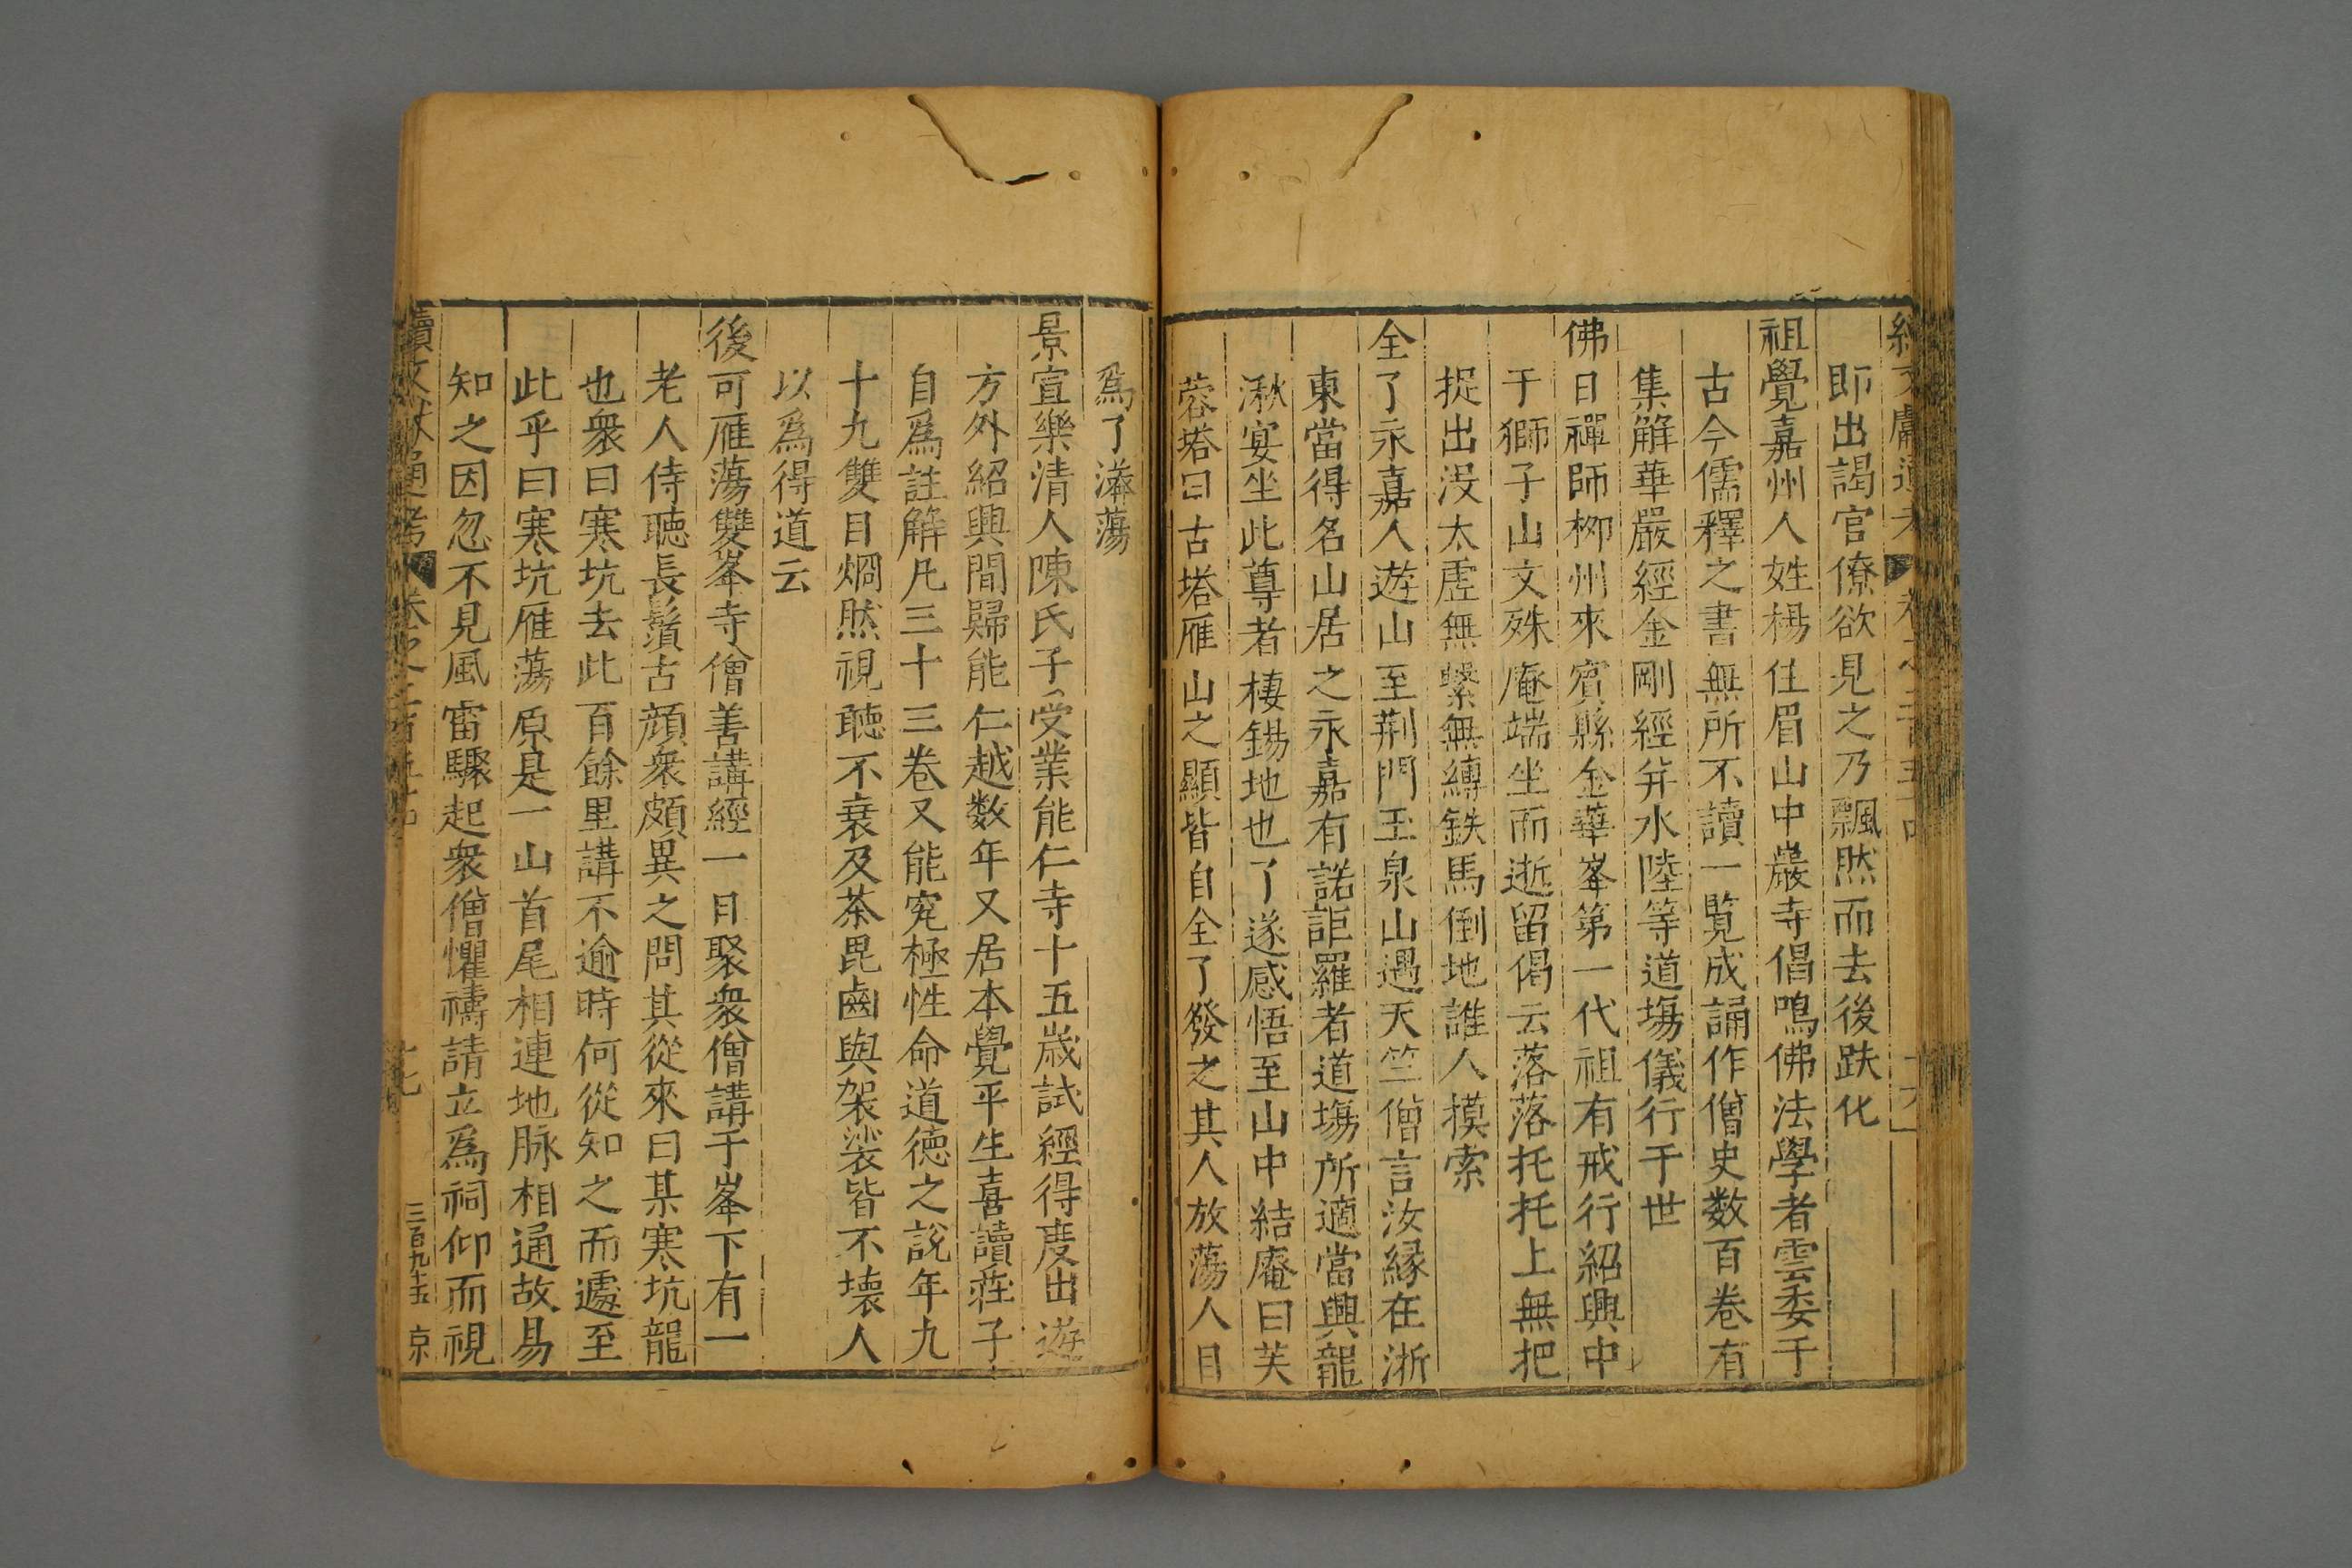 即出謁官僚欲見之乃飄然而去後趺化
祖覺嘉州人姓楊住眉山中巖寺倡鳴佛法學者雲委于
古今儒釋之書無所不讀一覧成誦作僧史数百卷有
集解華嚴經金剛經并水陸等道塲儀行于世
佛日禪師柳州來賔縣金華峯第一代祖有戒行紹興中
于獅子山文殊庵端坐而逝留偈云落落托托上無把
捉出沒太虛無繫無縛鉄馬倒地誰人摸索
全了永嘉人遊山至荆門玉泉山遇天竺僧言汝縁在浙
東當得名山居之永嘉有諾詎羅者道塲所適當興龍
湫宴坐此尊者棲錫地也了遂感悟至山中結庵曰芙
蓉塔曰古塔雁山之顯皆自全了發之其人放蕩人目
爲了漭蕩
景宣樂清人陳氏子受業能仁寺十五歳試經得度出遊
方外紹興間歸能仁越数年又居本覺平生喜讀莊子
自爲註解凡三十三卷又能究極性命道徳之說年九
十九雙目烱然視聴不衰及茶毘齒與袈裟皆不壊人
以爲得道云
後可雁蕩雙峯寺僧善講經一日聚衆僧講于峯下有一
老人侍聴長鬚古顔衆頗異之問其從來曰某寒坑龍
也衆曰寒坑去此百餘里講不逾時何從知之而遽至
此乎曰寒坑雁蕩原是一山首尾相連地脉相通故易
知之因忽不見風雷驟起衆僧懼禱請立爲祠仰而視
續文獻通考 卷之二百五十四 十七 三百九十五 京